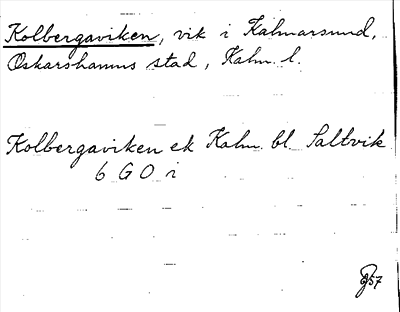 Kolbergaviken, vik i Kalmarsund,
Oskarshamns stad, Kalm. l.
Kolbergaviken ek Kalm. bl. Saltvik
6 G O i
57